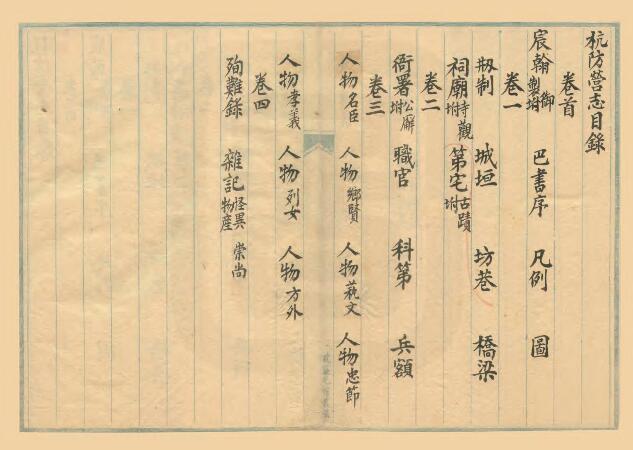 杭防營志目錄
卷首
宸翰 御製坿 巴書序 凡例 圖
卷一
刱制 城垣 坊巷 橋梁
祠廟 寺觀坿 第宅 古蹟坿
卷二
衙署 公廨坿 職官 科第 兵額
卷三
人物名臣 人物鄉賢 人物萟文 人物忠節
人物孝義 人物列女 人物方外
卷四
殉難錄 雜記 怪異物產 崇尚